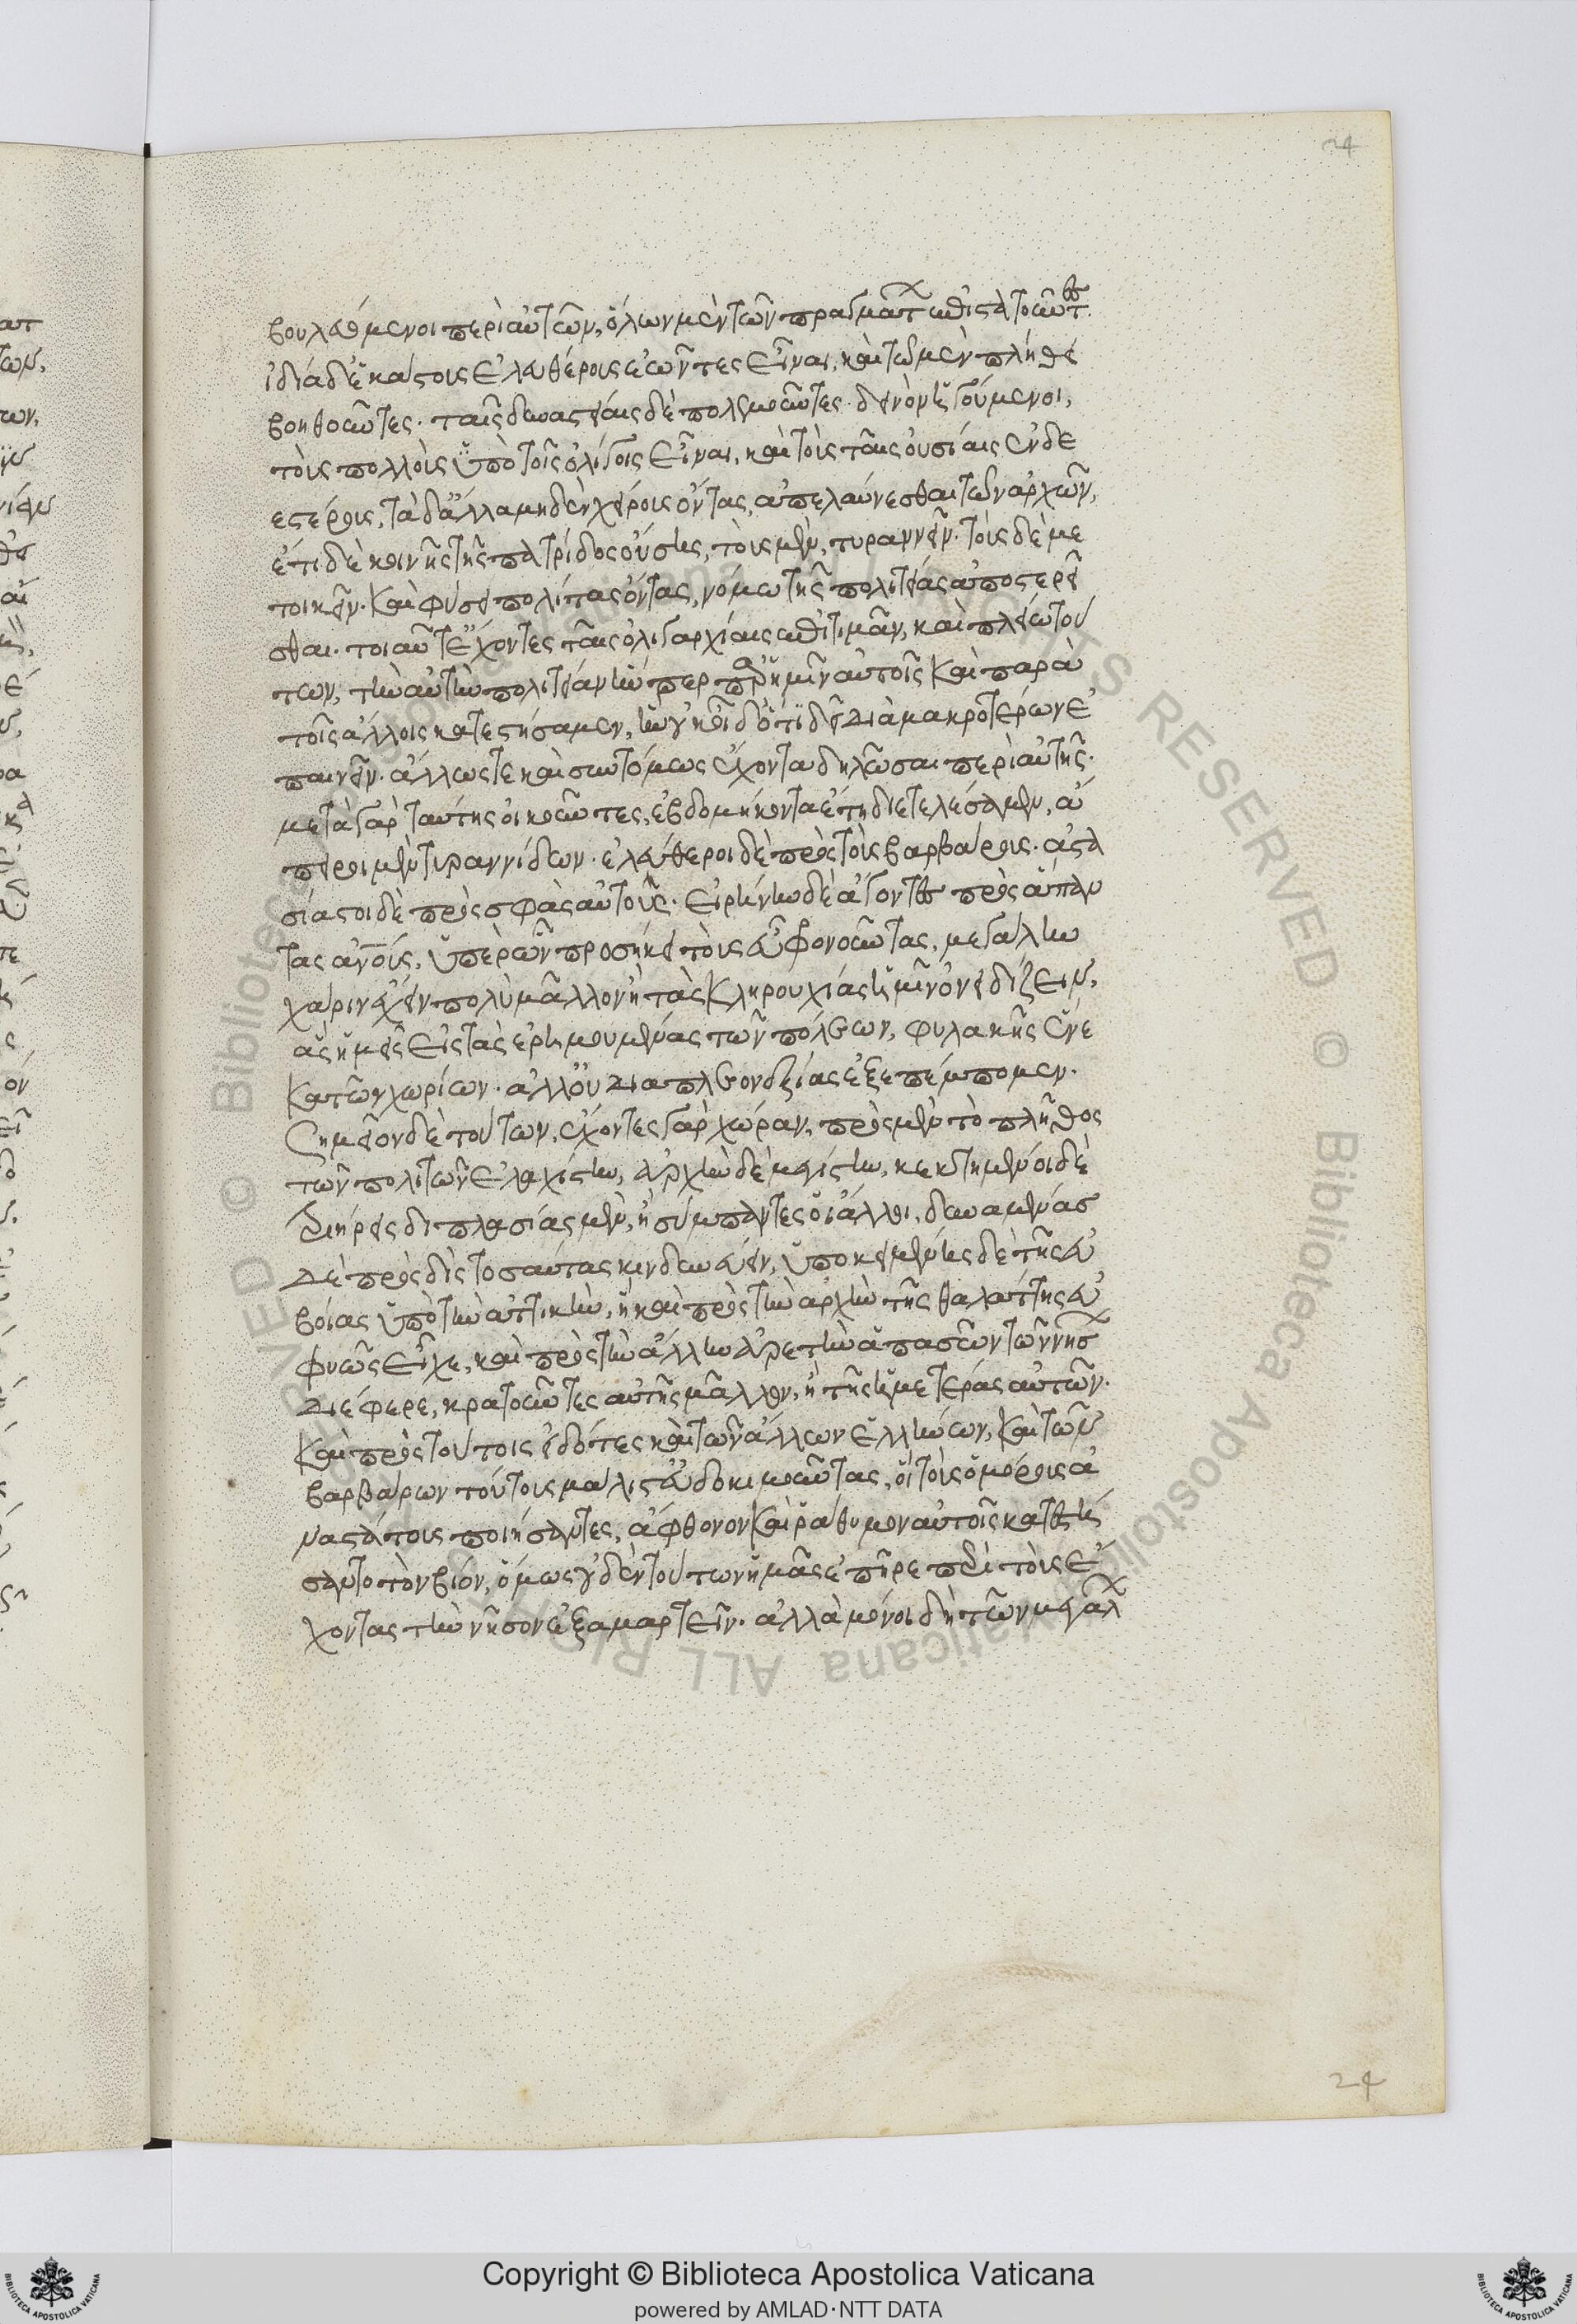 24
βουλευόμενοι περὶ αὐτῶν, ὅλων μὲν τῶν πραγμάτων ἐπιστατοῦντες.
ἰδία δ' ἑκάστους ἐλευθέρους ἐῶντες εἶναι, καὶ τῷ μὲν πλήθει
βοηθοῦντες. ταῖς δυναστείαις δὲ πολεμοῦντες. δεινὸν ἡγούμενοι,
τοὺς πολλοὺς ὑπὸ τοῖς ὀλίγοις εἶναι, καὶ τοὺς ταῖς οὐσίαις ἐνδε
εστέρους, τὰ δ' ἄλλα μηδὲν χείρους ὄντας, ἀπελαύνεσθαι τῶν ἀρχῶν,
ἔτι δὲ κοινῆς τῆς πατρίδος οὔσης, τοὺς μὲν, τυραννεῖν. τοὺς δὲ με
τοικεῖν. καὶ φύσει πολίτας ὄντας, νόμω τῆς πολιτείας ἀποστερεῖ
σθαι. τοιαῦτ' ἔχοντες ταῖς ὀλιγαρχίαις ἐπιτιμᾶν, καὶ πλείω τού
των, τὴν αὐτὴν πολιτείαν ἥνπερ παρ' ἡμῖν αὐτοῖς καὶ παρὰ
τοῖς ἄλλοις κατεστήσαμεν, ἣν οὐκ οἶδ' ὅτι δεῖ διὰ μακροτέρων ἐ
παινεῖν. ἄλλως τε καὶ συντόμως ἔχοντα δηλῶσαι περὶ αὐτῆς.
μετὰ γὰρ ταύτης οἰκοῦντες, ἑβδομήκοντα ἔτη διετελέσαμεν, ἄ
πειροι μὲν τυραννίδων. ἐλεύθεροι δὲ πρὸς τοὺς βαρβάρους. ἀστα
σίαστοι δὲ πρὸς σφᾶς αὐτούς. εἰρήνην δὲ ἄγοντες πρὸς ἅπαν
τας ἀνούς, ὑπὲρ ὧν προσήκει τοὺς εὖ φρονοῦντας, μεγάλην
χάριν ἔχειν πολὺ μᾶλλον ἢ τὰς κληρουχίας ἡμῖν ὀνειδίζειν,
ἃς ἡμεῖς εἰς τὰς ἐρημουμένας τῶν πόλεων, φυλακῆς ἕνε
κα τῶν χωρίων. ἀλλ' οὐ διὰ πλεονεξίας ἐξεπέμπομεν.
σημεῖον δὲ τούτων, ἔχοντες γὰρ χώραν, πρὸς μὲν τὸ πλῆθος
τῶν πολιτῶν ἐλαχίστην, ἀρχὴν δὲ μεγίστην, κεκτημένοι δὲ
τριήρεις διπλασίας μὲν, ἢ σύμπαντες οἱ ἄλλοι, δυναμένας
δὲ πρὸς δὶς τοσαύτας κινδυνεύειν, ὑποκειμένης δὲ τῆς εὐ
βοίας ὑπὸ τὴν ἀττικὴν, ἣ καὶ πρὸς τὴν ἀρχὴν τῆς θαλάττης εὐ
φυῶς εἶχε, καὶ πρὸς τὴν ἄλλην ἀρετὴν ἁπασῶν τῶν νήσων
διέφερε, κρατοῦντες αὐτῆς μᾶλλον, ἢ τῆς ἡμετέρας αὐτῶν.
καὶ πρὸς τούτοις εἰδότες καὶ τῶν ἄλλων ἑλλήνων, καὶ τῶν
βαρβάρων τούτους μάλιστ' εὐδοκιμοῦντας, οἳ τοὺς ὁμόρους ἀ
ναστάτους ποιήσαντες, ἄφθονον καὶ ῥάθυμον αὐτοῖς κατεστή
σαντο τὸν βίον, ὅμως οὐδὲν τούτων ἡμᾶς ἐπῆρε περὶ τοὺς ἔ
χοντας τὴν νῆσον ἐξαμαρτεῖν. ἀλλὰ μόνοι δὴ τῶν μεγάλ
24
Copyright © Biblioteca Apostolica Vaticana
powered by AMLAD·NTT DATA